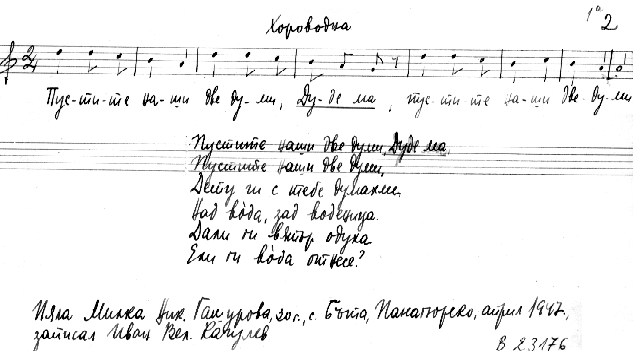 Хороводна
1а 2
Пус-ти-те на-ши две ду-ми, Ду-де ма, пус-ти-те на-ши две ду-ми
Пустите наши две думи, Дуде ма,
Пустите наши две думи,
Дету ги с тебе думахми
Над вòда, зад воденица.
Дали ги вятър одуха
Ели ги вòда отнесе?
Пяла Милка Ник. , 20 г., с. Бъта, Панагюрско, април 1947,
записал Иван Вел. Качулев
В 23176